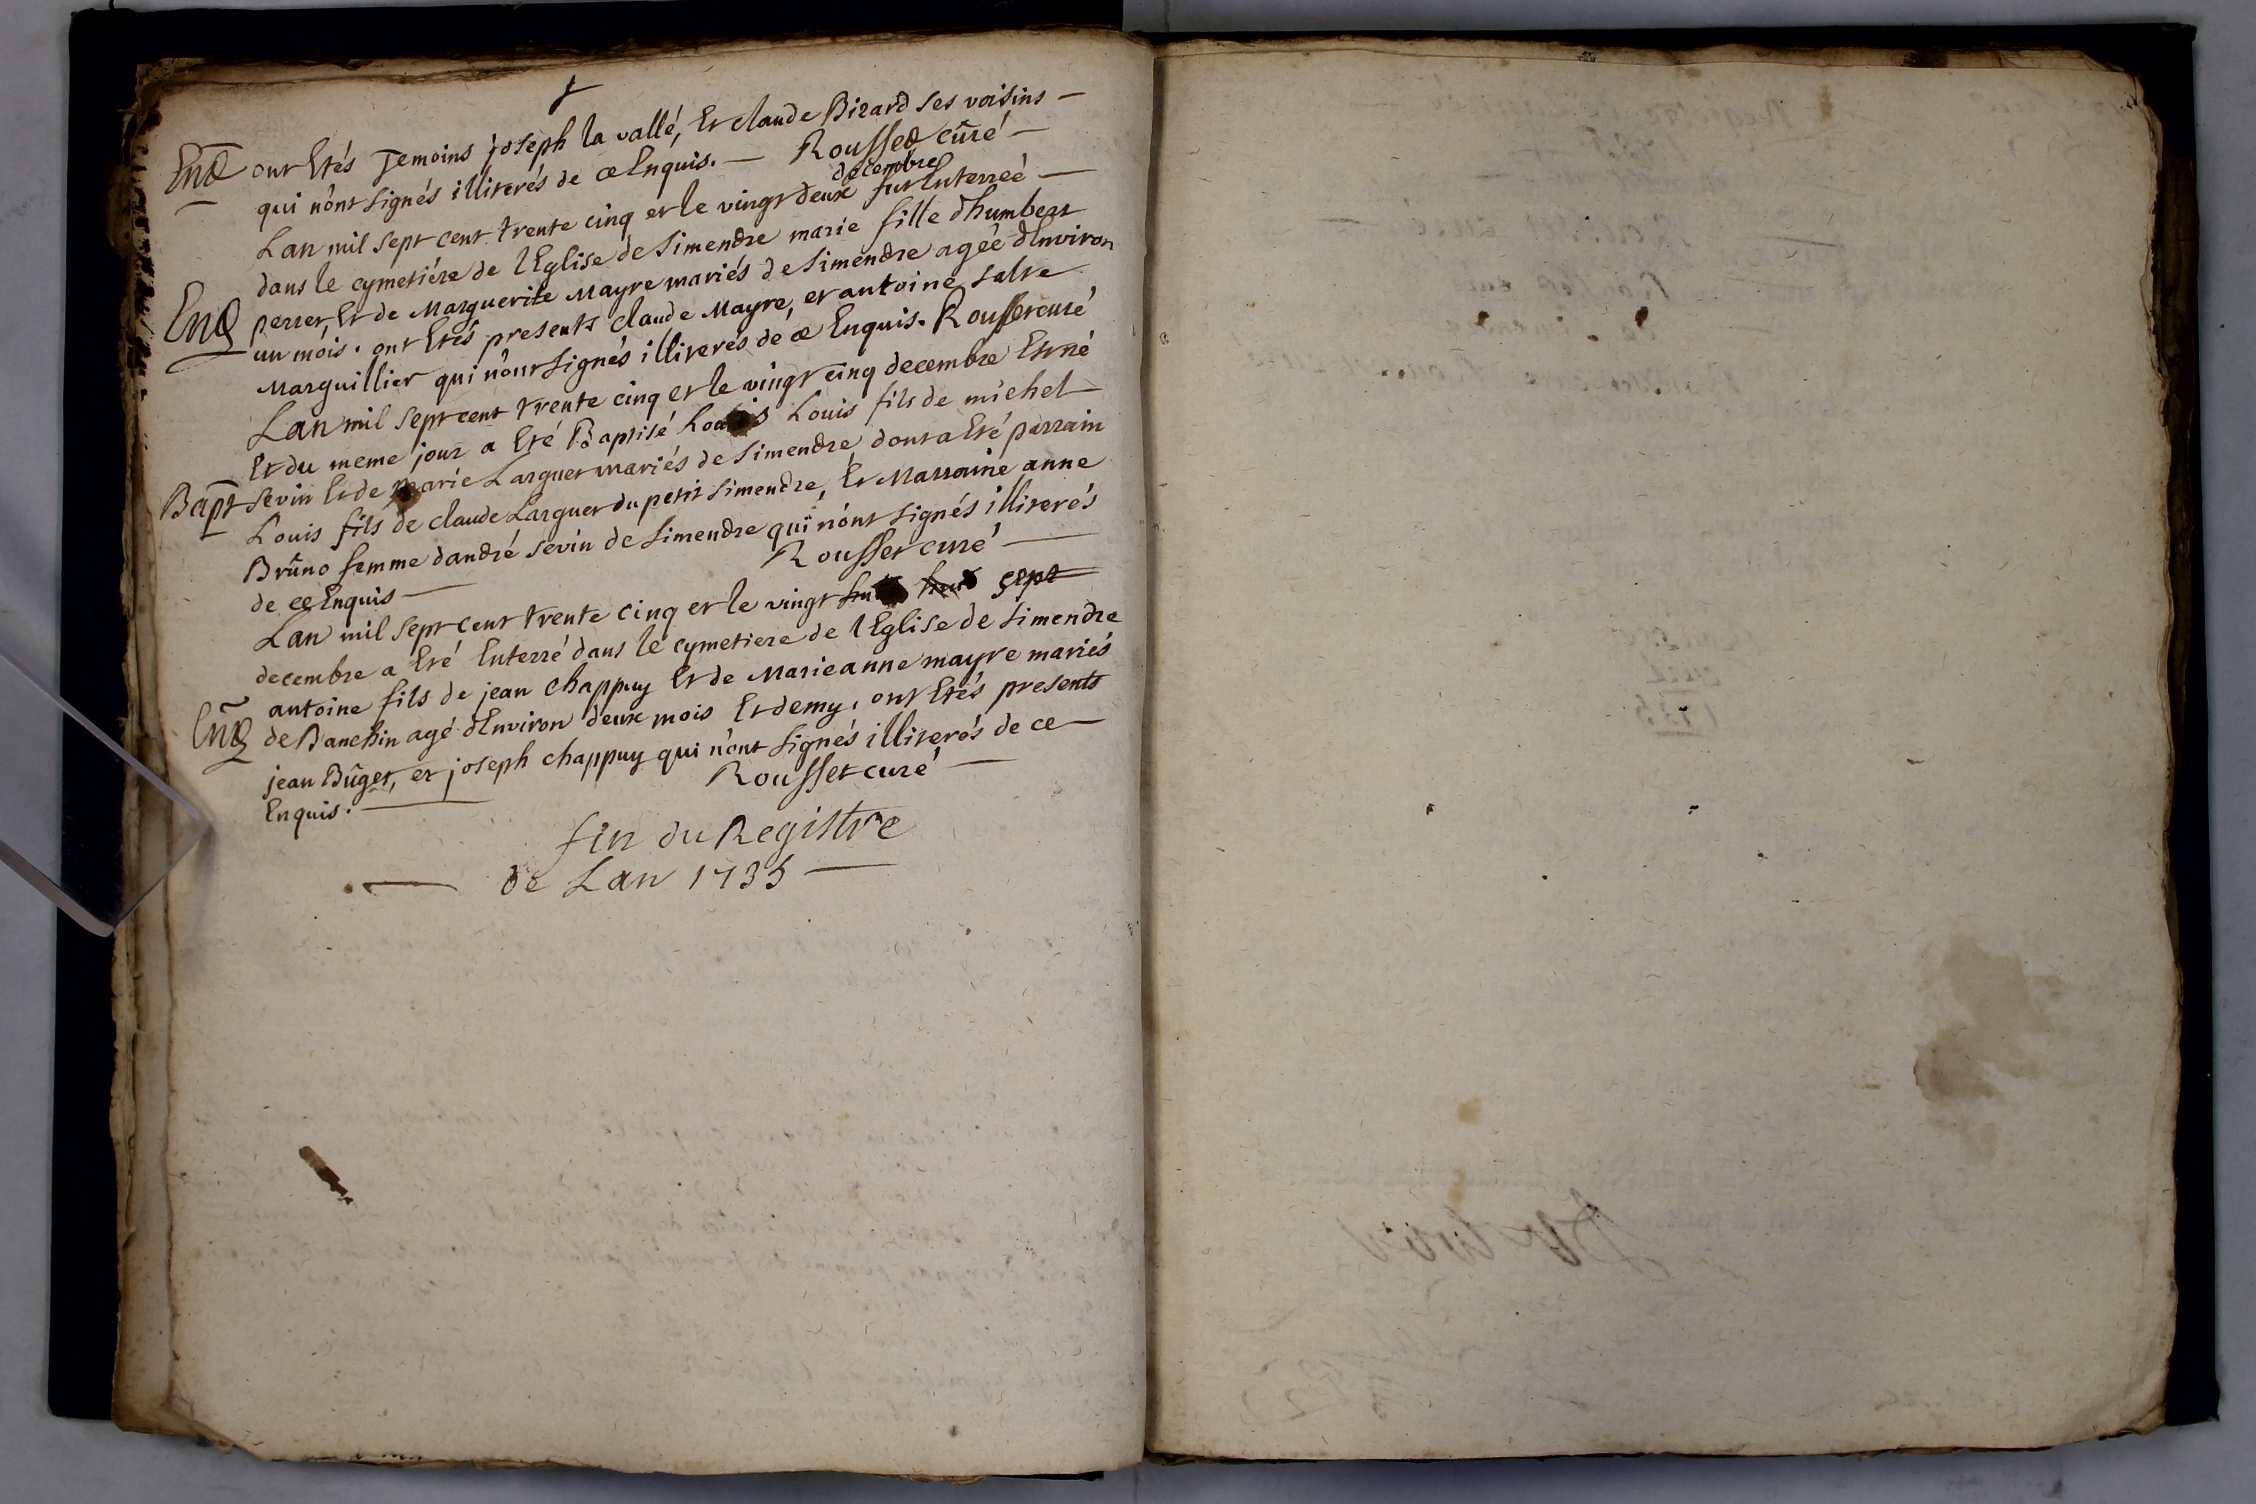 ont Etés Temoins joseph la vallé, Et claude Bizard ses voisins —
qui n'ont signés illiterés de ce Enquis. — Rousset curé —
Lan mil sept cent trente cinq et le vingt deux decembre fut Enterreé —
dans le cymetiére de l Eglise de Simendre marie fille d'humbert
Enq perret, Et de Marguerite Mayre mariés de Simendre ageé d Environ
un mois. ont Etés presents claude Mayre, et antoine salve
Marguillier qui n'ont signés illiterés de ce Enquis. Rousset curé
Lan mil sept cent trente cinq et le vingt cinq decembre Est né
Et du meme jour a Eté Baptisé Louis Louis fils de michel
Bapt sevin Et de marie Larguer mariés de Simendre, dont a Eté parrain
Louis fils de claude Larguer du petit Simendre, Et Marraine anne
Brûno femme dandré sevin de Simendre qui n'ont signés illiterés
de ce Enquis — Rousset curé —
Lan mil sept cent trente cinq et le vingt huit sept
decembre a Eté Enterré dans le cymetiere de l Eglise de Simendre
antoine fils de jean chappuy Et de Marieanne mayre mariés
Enq de Banchin agé d Environ deux mois Et demy. ont Etés presents
jean Bûget, et joseph chappuy qui n'ont signés illiterés de ce —
Enquis. — Rousset curé —
fin du Registre
— de Lan 1735 —